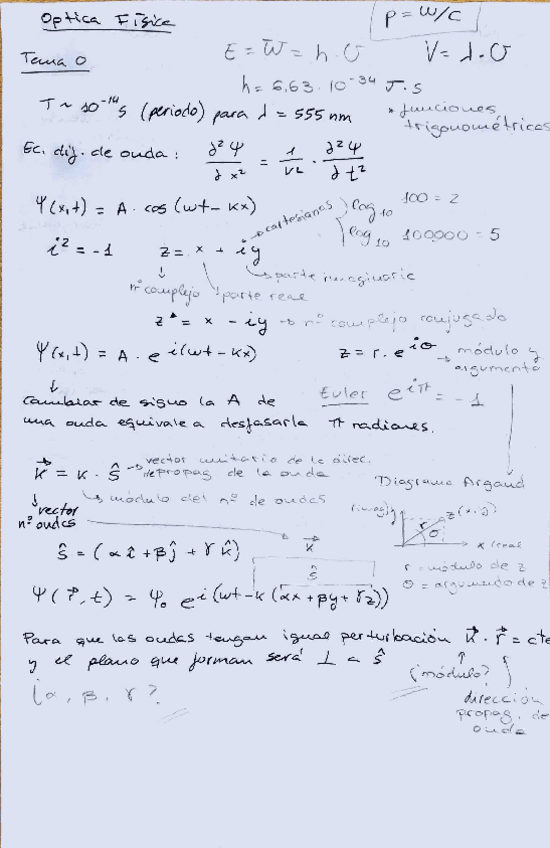 Optica Física
p = W/c
Tema 0
E = W = h · υ
V = λ · υ
h = 6,63 · 10⁻³⁴ J · s
T ~ 10⁻¹⁴ s (periodo) para λ = 555 nm
* funciones trigonométricas
Ec. dif. de onda : ∂²Ψ/∂x² = 1/V² · ∂²Ψ/∂t²
Ψ(x,t) = A · cos (ωt - kx)
cartesianas
log₁₀ 100 = 2
log₁₀ 100.000 = 5
i² = -1
z = x + iy
parte imaginaria
nº complejo
parte real
z* = x - iy → nº complejo conjugado
Ψ(x,t) = A · e^i(ωt - kx)
z = r · e^iθ → módulo y argumento
Cambiar de signo la A de
una onda equivale a desfasarla π radianes.
Euler e^iπ = -1
k⃗ = k · ŝ → vector unitario de la direc.
de propag de la onda
módulo del nº de ondas
vector
nº ondas
Diagrama Argand
(imag) y
z (x, y)
r
θ
x (real)
k⃗
ŝ = (α î + β ĵ + γ k̂)
ŝ
r = módulo de z
θ = argumento de z
Ψ(r⃗, t) = Ψ₀ e^i(ωt - k(αx + βy + γz))
Para que las ondas tengan igual perturbación k⃗ · r⃗ = cte
y el plano que forman será ⊥ a ŝ
¿módulo?
¿α, β, γ?
dirección
propag. de
onda